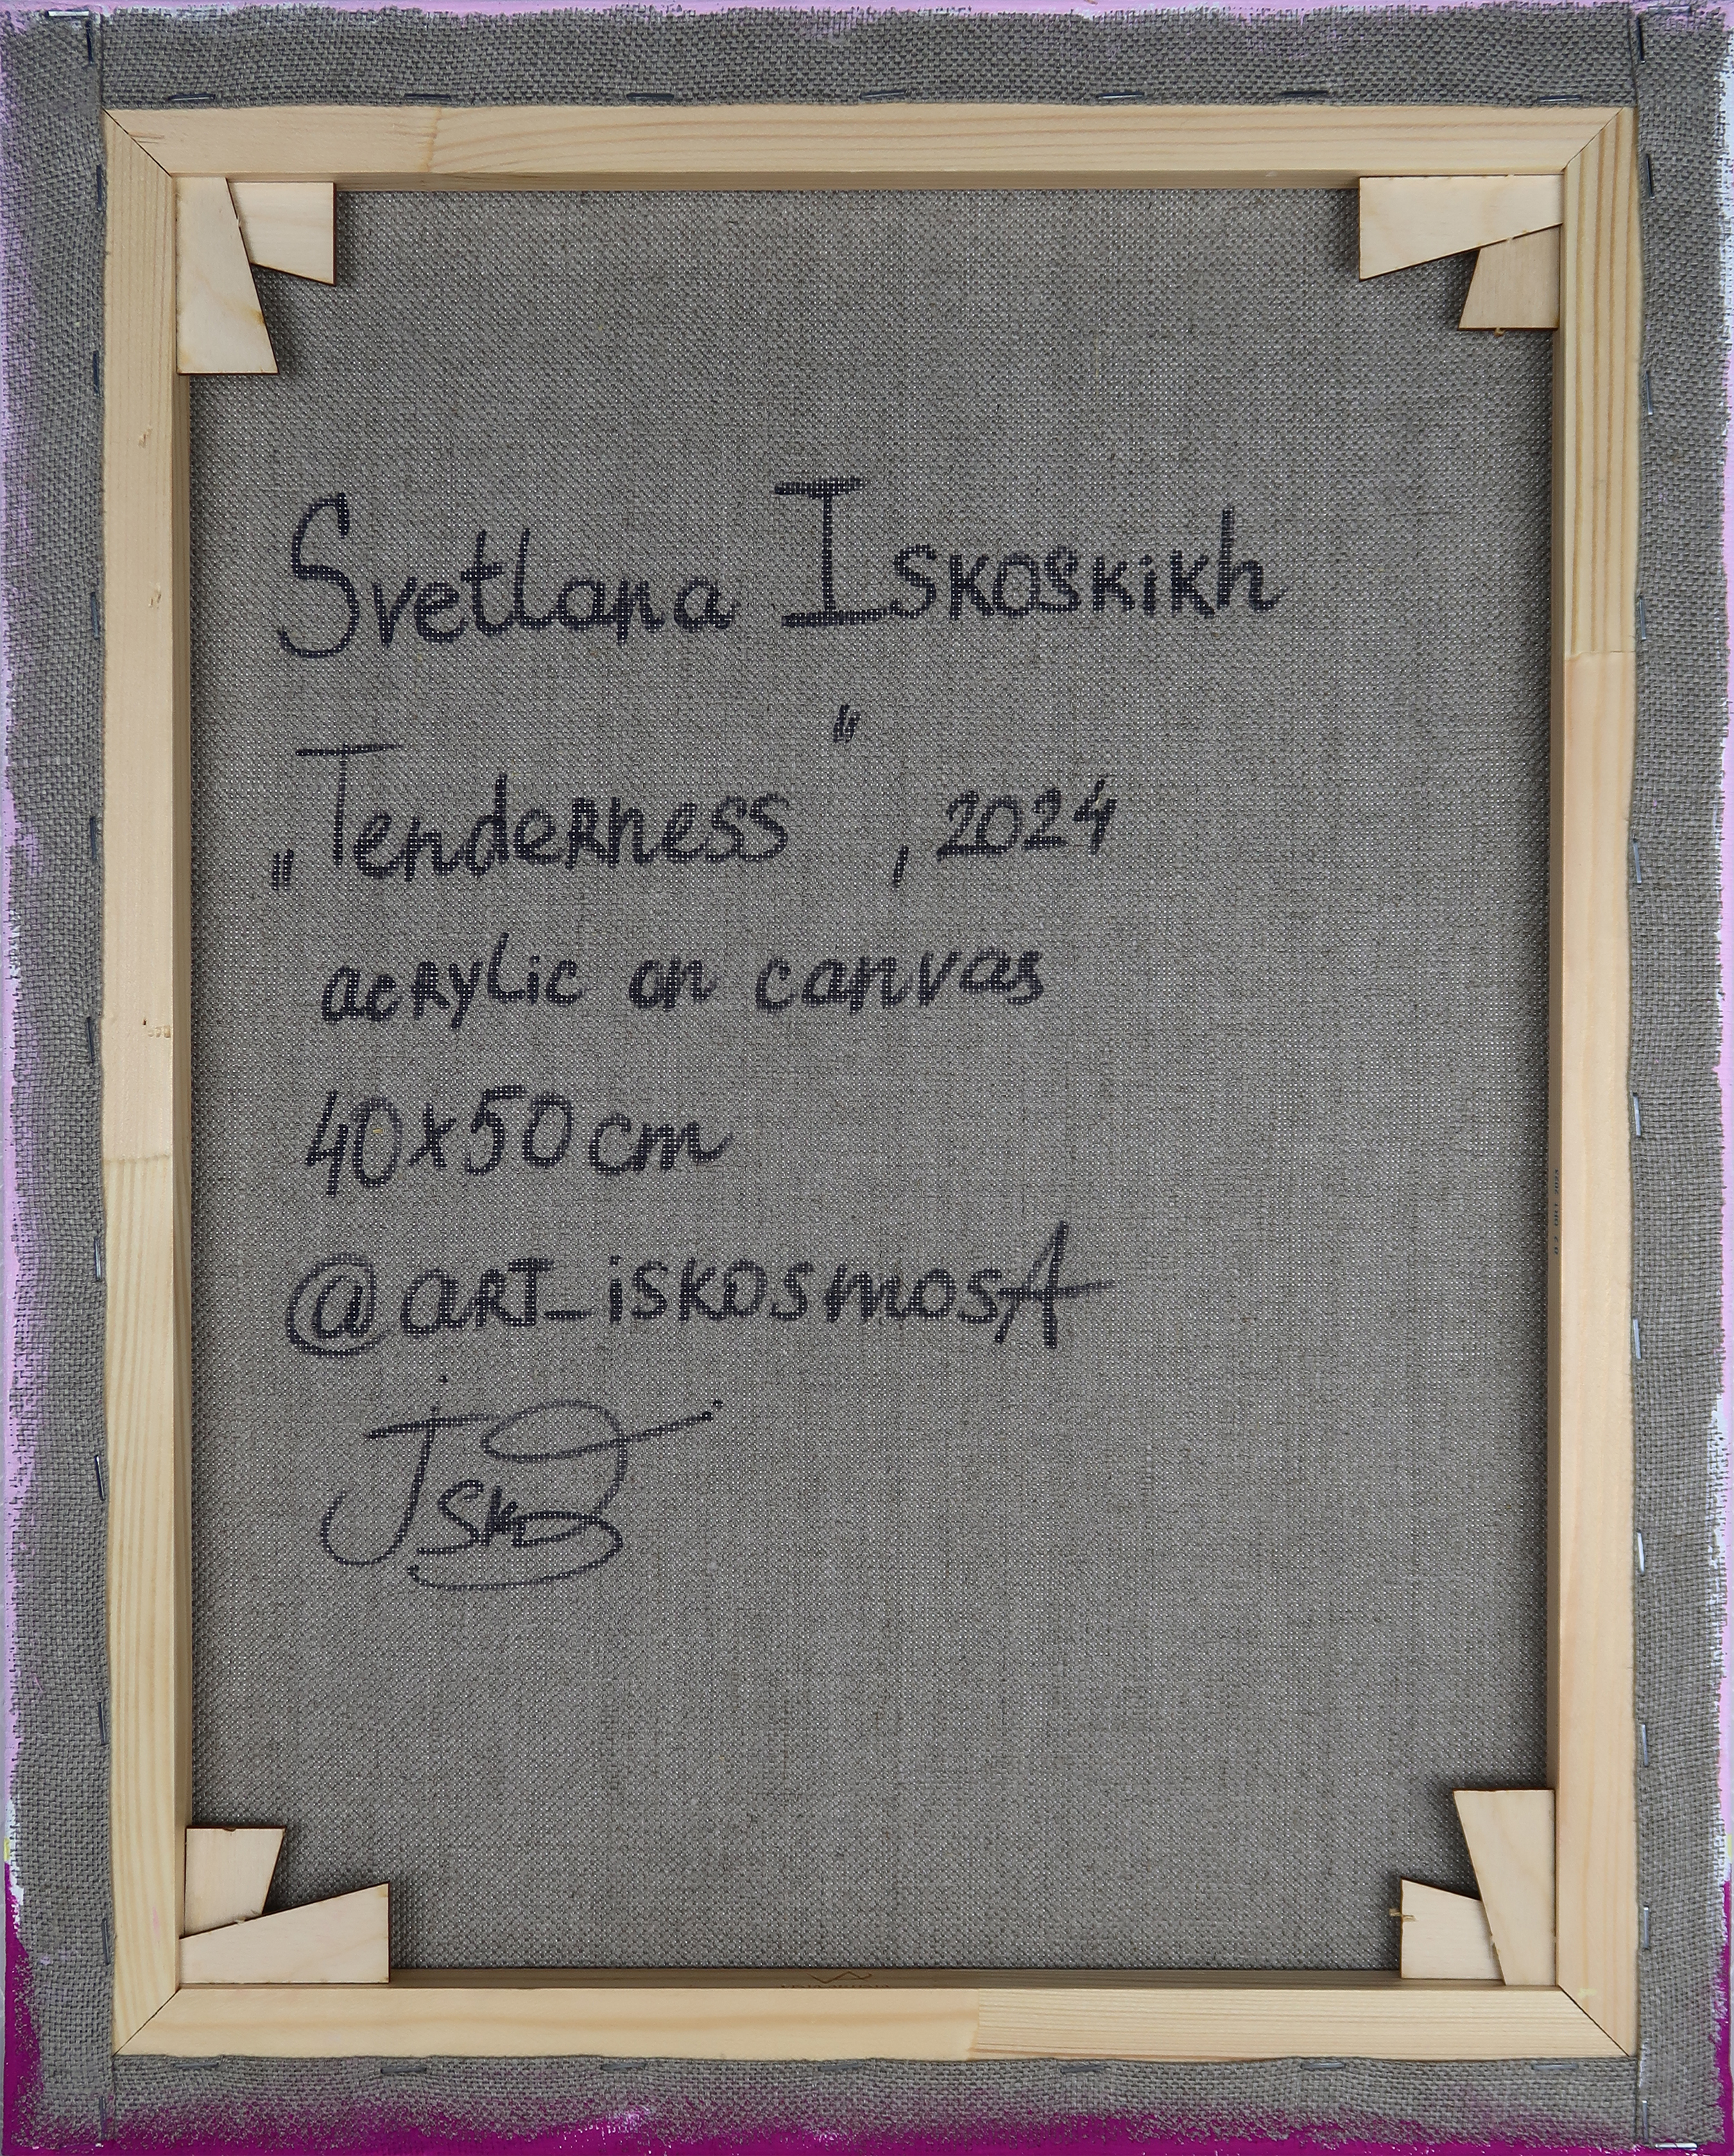 Svetlana Iskoskikh
„Tenderness", 2024
acrylic on canvas
40x50cm
@art_iskosmosA
Isko